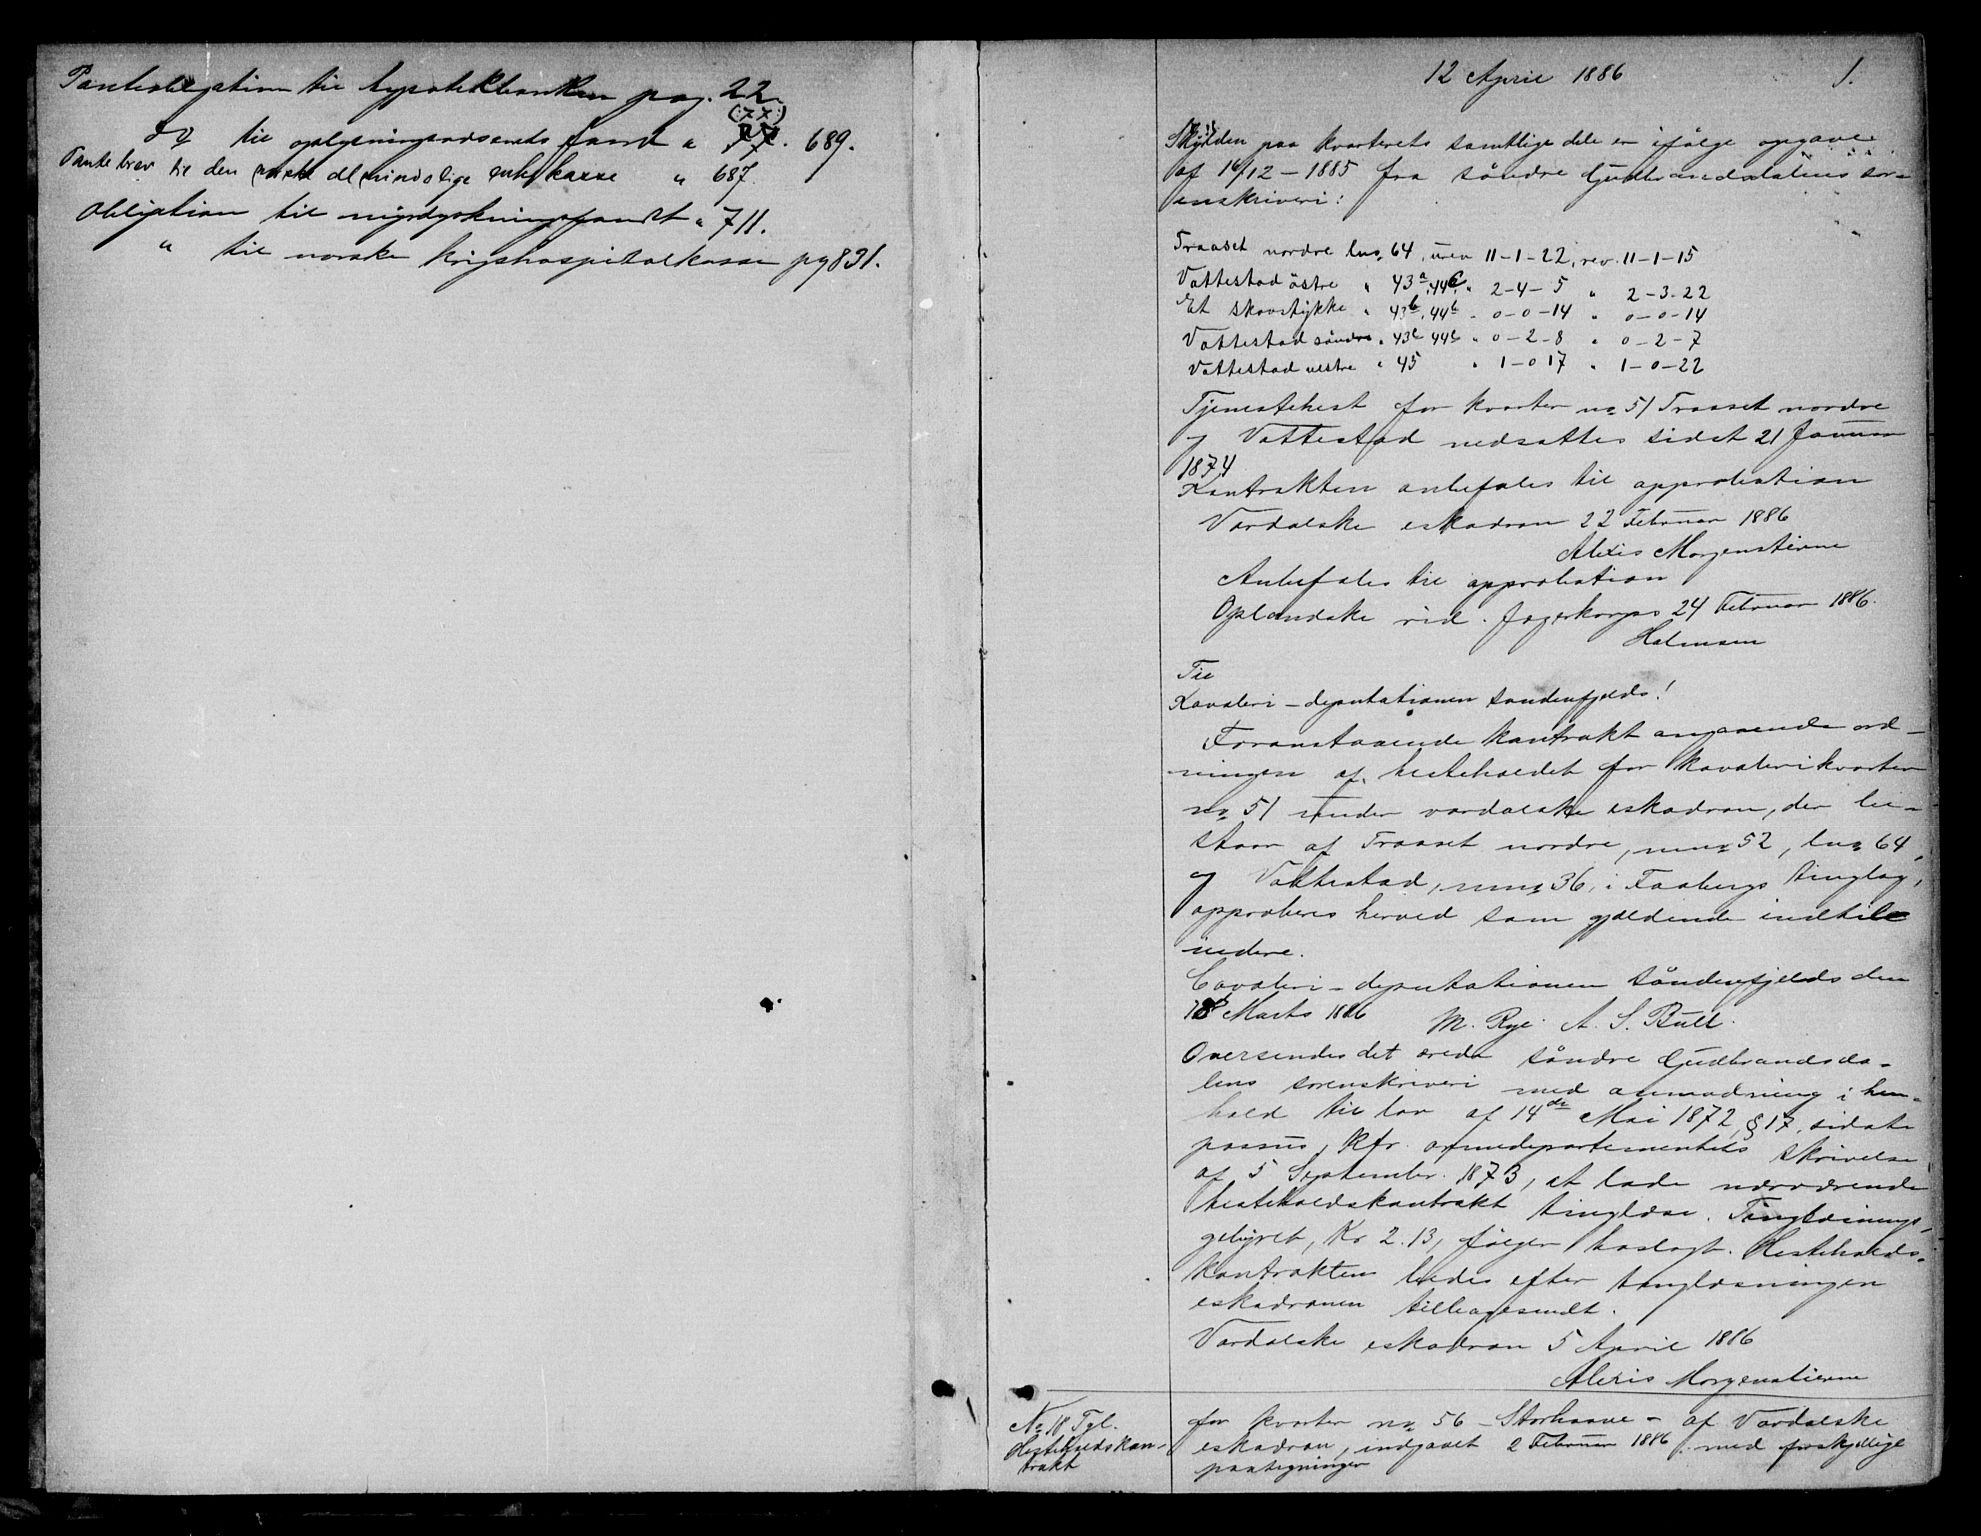 Panteobligation til hypotekbanken pag. 22.
(:77:)
do til oplysningsvæsenets fond " 77. 689.
Pantebrev til den norske almindelige enkekasse " 687.
Obligation til myrdyrkningsfondet " 711.
" til norske krigshospitalkasse pg 831.
12 April 1886
1.
Skylden paa kvarterets samtlige dele er ifølge opgave
af 16/12 - 1885 fra søndre Gudbrandsdalens sor-
enskriveri:
Traaset nordre lno 64, urev 11-1-22, rev. 11-1-15
Vattestad østre " 43a, 44a " 2-4-5 " 2-3-22
Et skovstykke " 43b, 44b " 0-0-14 " 0-0-14
Vattestad søndre " 43c 44c " 0-2-8 " 0-2-7
Vattestad vestre " 45 " 1-0 17 " 1-0-22
Tjenestehest for kvarter no 51 Traaset nordre
og Vattestad nedsattes sidst 21 Januar
1874
Kontrakten anbefales til approbation
Vardalske eskadron 22 Februar 1886
Alexis Morgenstierne
Anbefales til approbation
Oplandske rid. jægerkorps 24 Februar 1886.
Holmsen
Til
Kavaleri-deputationen søndenfjelds!
Foranstaaende kontrakt angaaende ord-
ningen af hesteholdet for kavalerikvarter
no 51 under vardalske eskadron, der be-
staar af Traaset nordre, mno 52, lno 64,
og Vattestad, mno 36, i Faabergs tinglag,
approberes herved som gjældende indtil
videre.
Cavaleri-deputationen søndenfjelds den
18 Marts 1886 M. Rye. A. S. Bull.
Oversendes det ærede søndre Gudbrandsda-
lens sorenskriveri med anmodning i hen-
hold til lov af 14de Mai 1872, § 17, sidste
passus, kfr. armedepartementets skrivelse
af 5 September 1873, at lade nærværende
hesteholdskontrakt tinglæse. Tinglæsnings-
gebyret, Kr 2.13, følger vedlagt. Hesteholds-
kontrakten bedes efter tinglæsningen
eskadronen tilbagesendt.
Vardalske eskadron 5 April 1886
Alexis Morgenstierne
No 18 Tgl.
Hesteholdskon-
trakt
for kvarter no 56 - Storhaave - af Vardalske
eskadron, indgaaet 2 Februar 1886 med forskjellige
paategninger